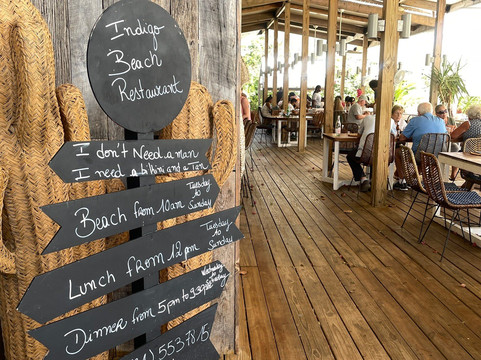 Indigo
Beach
Restaurant
I don't Need a man
I need a bikini and a Tan
Beach from 10am Tuesday to Sunday
Lunch from 12pm Tuesday to Sunday
Dinner from 5pm to 9.30pm Wednesday to Saturday
553781.5